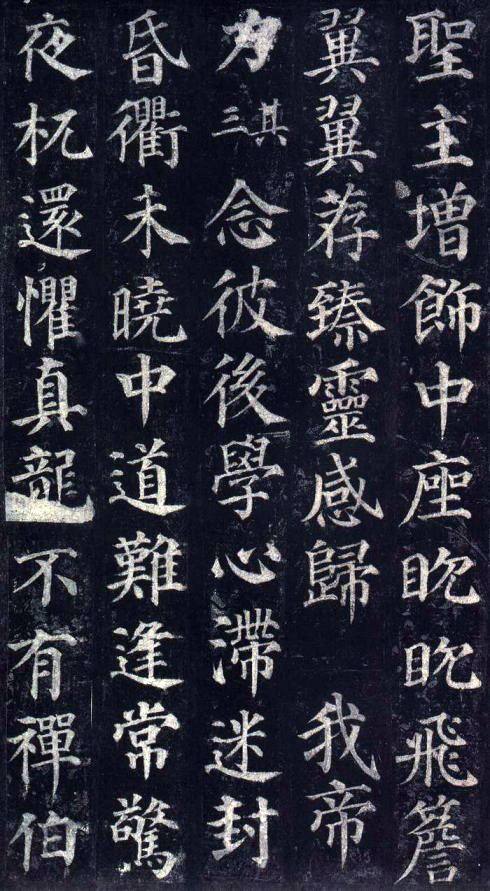 聖主增飾中座眈眈飛簷
翼翼荐臻靈感歸　我帝
力其三念彼後學心滯迷封
昏衢未曉中道難逢常驚
夜杌還懼真龍不有禪伯